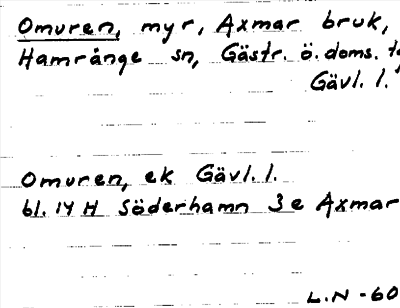 Omuren, myr, Axmar bruk,
Hamrånge sn, Gästr. ö. doms.
Gävl. l.
Omuren, ek Gävl. l.
bl. 14 H Söderhamn 3 e Axmar
L.N -60